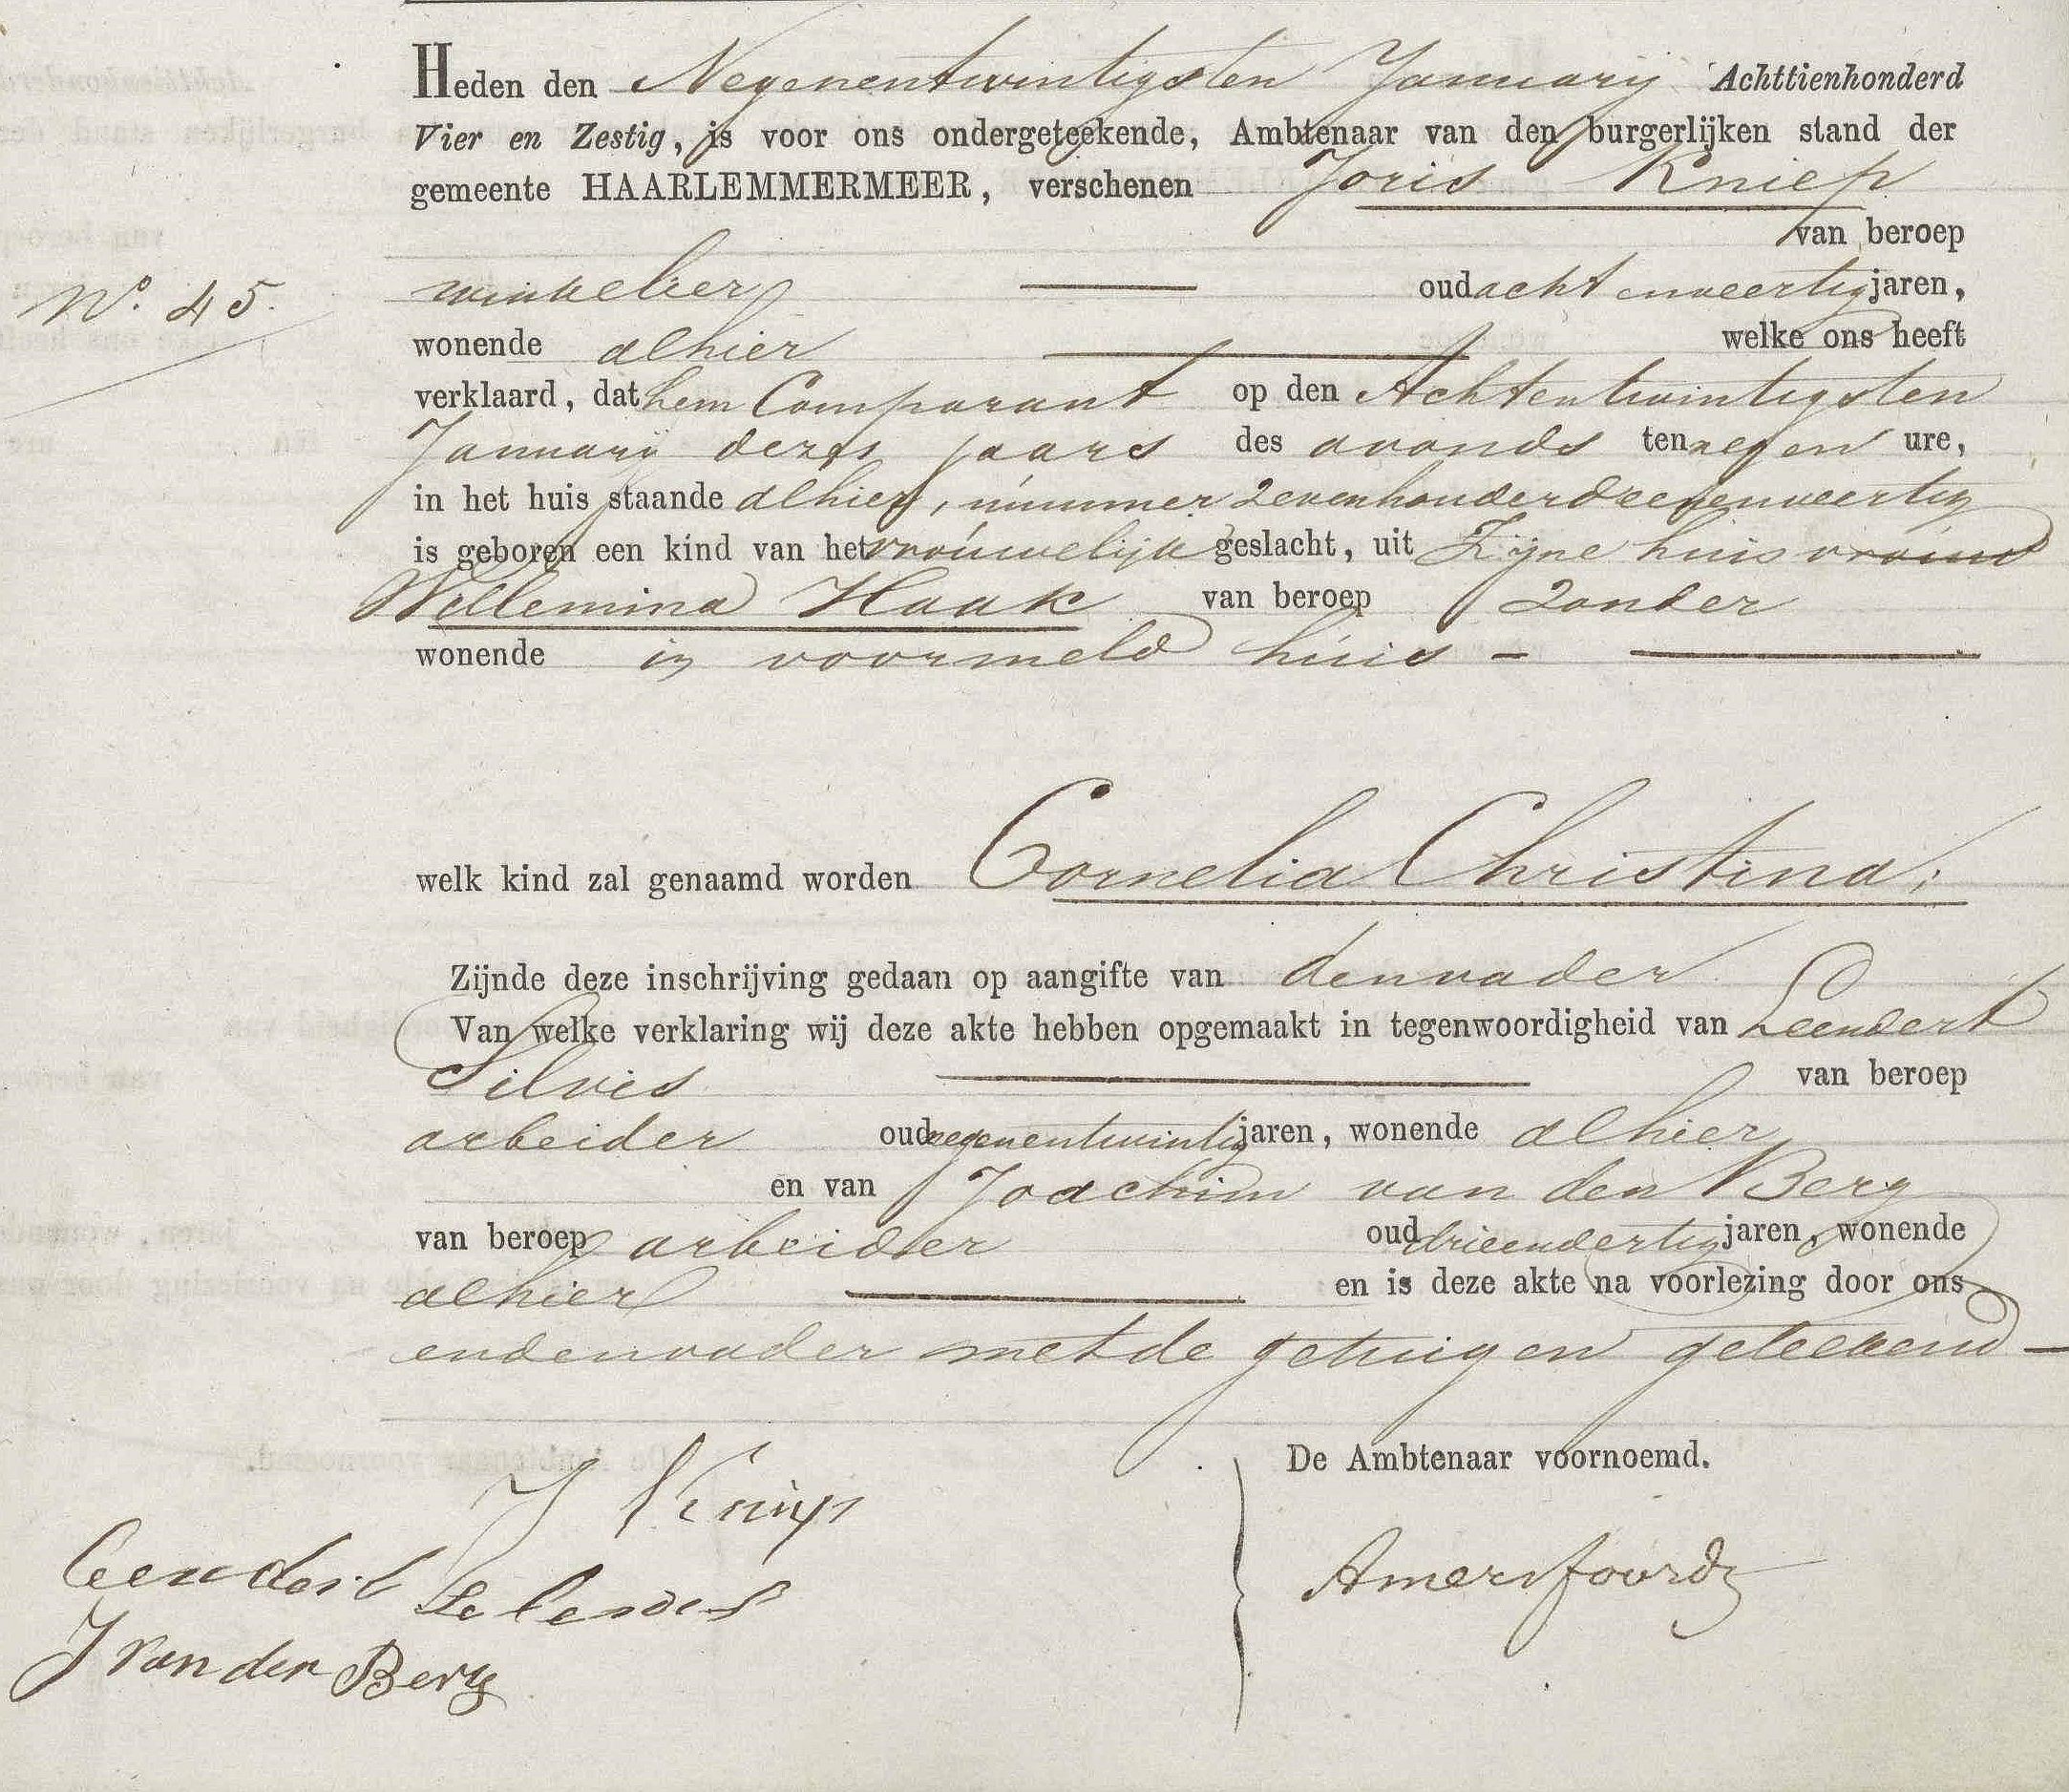 Heden den Negenentwintigsten Januarij Achttienhonderd
Vier en Zestig, is voor ons ondergeteekende, Ambtenaar van den burgerlijken stand der
gemeente HAARLEMMERMEER, verschenen Joris Kniep
van beroep
No. 45.
winkelier oud achtenveertig jaren,
wonende alhier welke ons heeft
verklaard, dat hem Comparant op den Achtentwintigsten
Januarij dezes jaars des avonds ten negen ure,
in het huis staande alhier, nummer zevenhonderd eenenveertig
is geboren een kind van het vrouwelijk geslacht, uit Zijne huisvrouw
Willemina Haak van beroep zonder
wonende in voormeld huis -
welk kind zal genaamd worden Cornelia Christina;
Zijnde deze inschrijving gedaan op aangifte van den vader
Van welke verklaring wij deze akte hebben opgemaakt in tegenwoordigheid van Leendert
Silvis van beroep
arbeider oud negenentwintig jaren, wonende alhier
en van Joachim van den Berg
van beroep arbeider oud drieendertig jaren, wonende
alhier en is deze akte na voorlezing door ons
en den vader met de getuigen geteekend -
De Ambtenaar voornoemd.
J Kniep
Amersfoordt
Leendert
J van der Berg